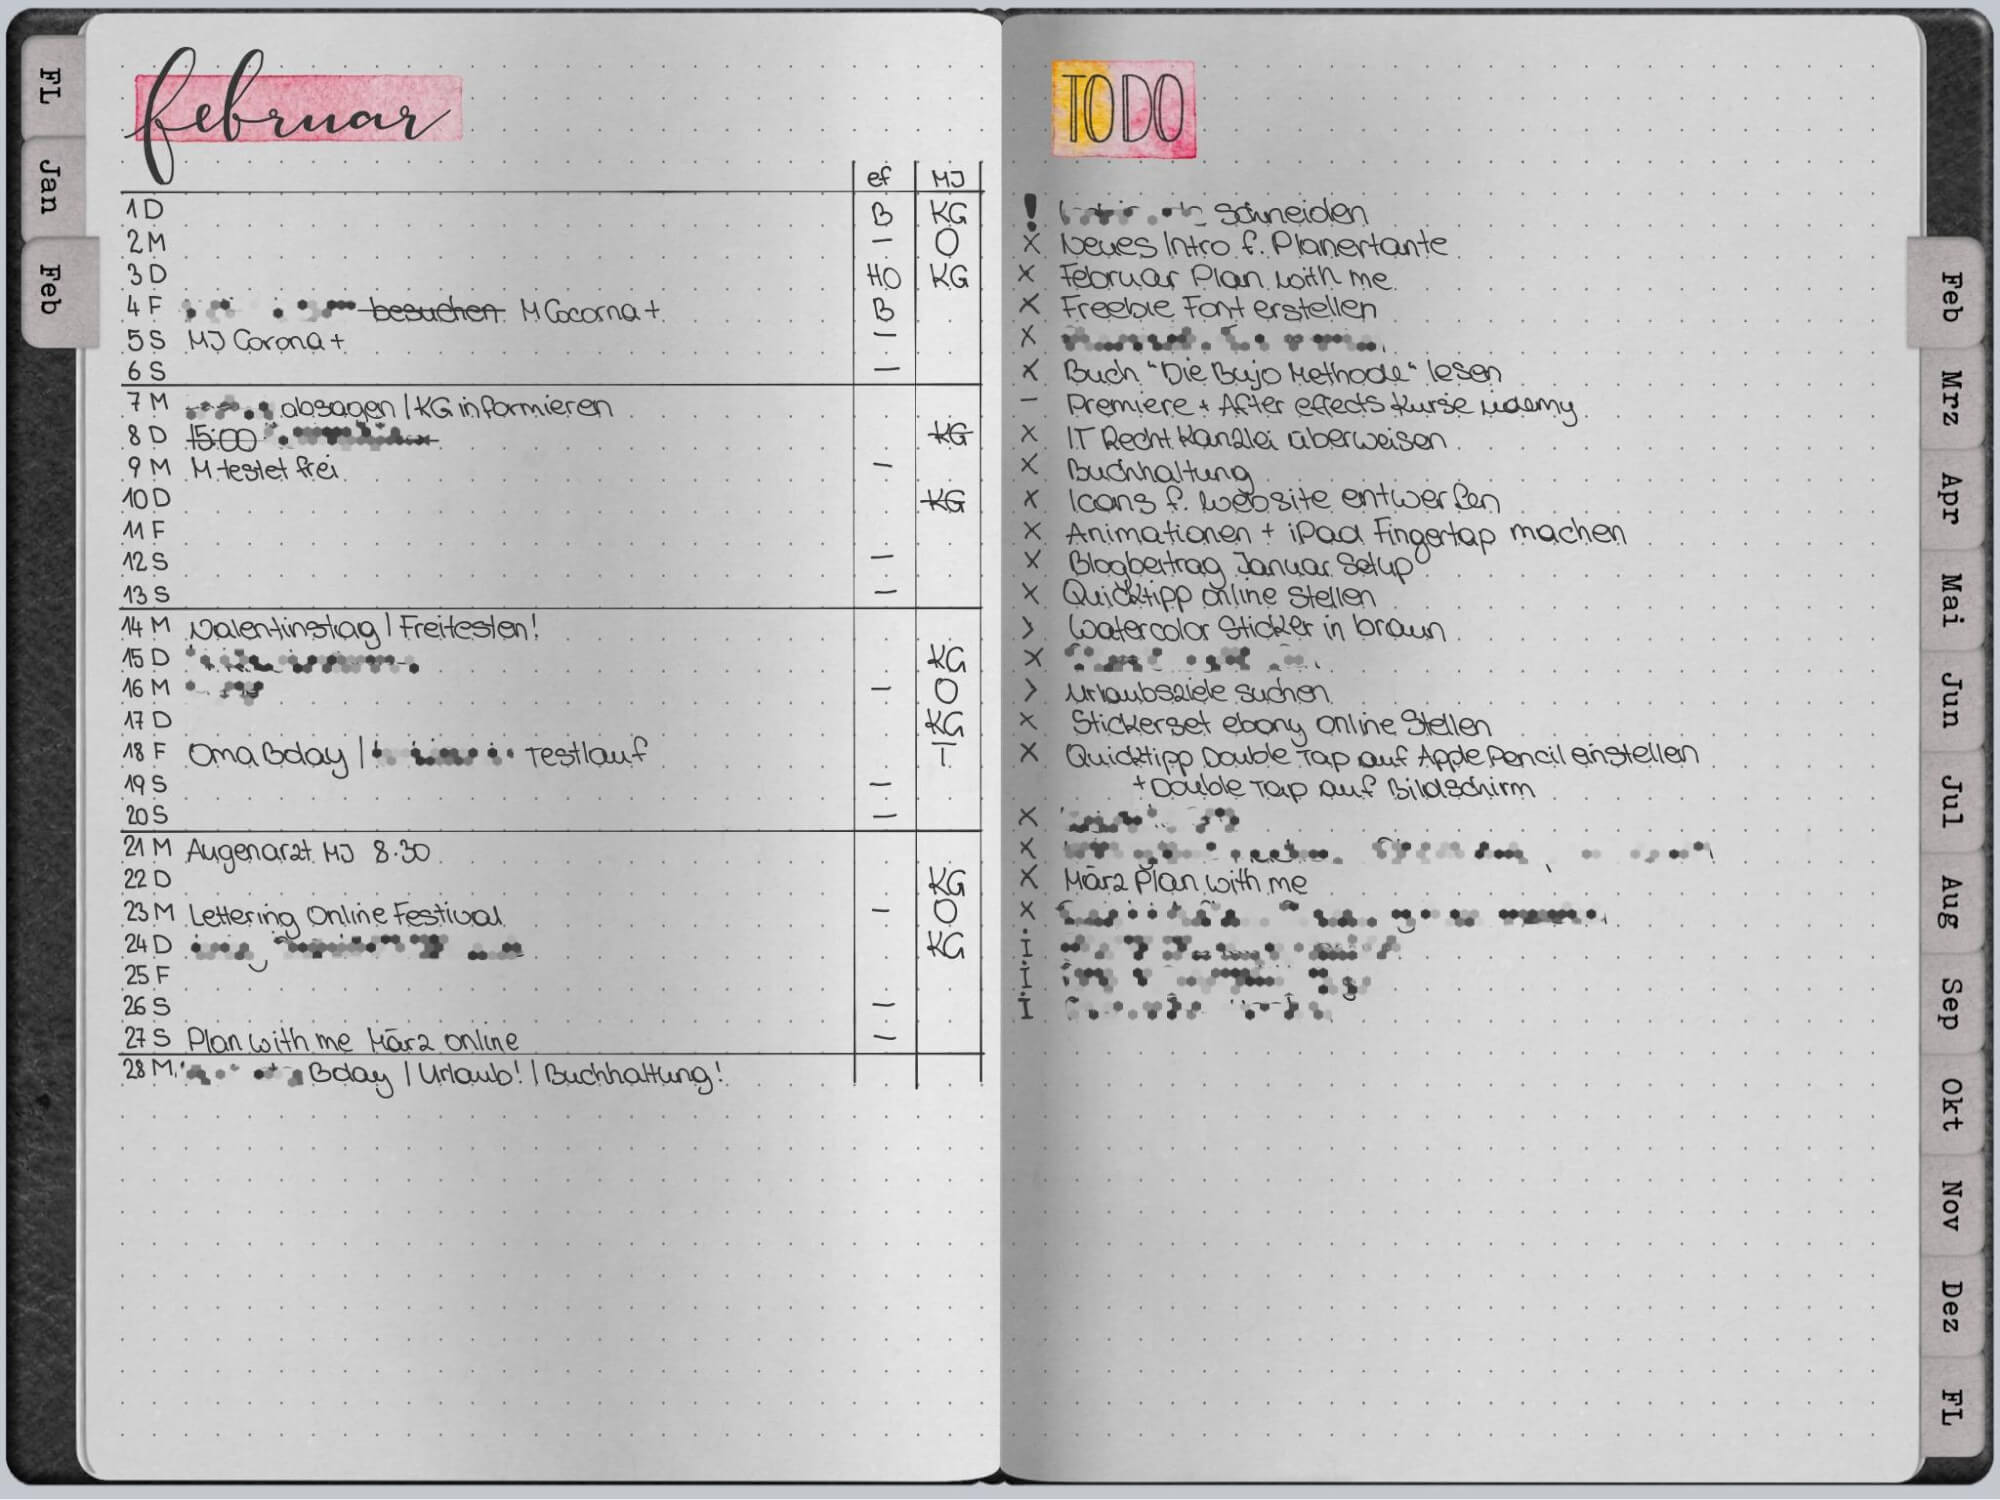 FL
Jan
Feb
februar
ef MJ
1 D B KG
2 M – O
3 D HO KG
4 F besuchen M Cocorna + B
5 S MJ Corona + –
6 S –
7 M absagen | KG informieren
8 D 15:00 KG
9 M M testet frei –
10 D KG
11 F
12 S –
13 S –
14 M Valentinstag | Freitesten!
15 D KG
16 M – O
17 D KG
18 F Oma Bday | Testlauf T
19 S –
20 S –
21 M Augenarzt MJ 8.30
22 D KG
23 M Lettering Online Festival – O
24 D KG
25 F
26 S –
27 S Plan with me März online –
28 M Bday | Urlaub! | Buchhaltung!
TODO
! schneiden
x Neues Intro f. Planertante
x Februar Plan with me
x Freebie Font erstellen
x
x Buch "Die Bujo Methode" lesen
– Premiere + After effects Kurse udemy
x IT Recht Kanzlei überweisen
x Buchhaltung
x Icons f. Website entwerfen
x Animationen + iPad Fingertap machen
x Blogbeitrag Januar Setup
x Quicktipp online stellen
> Watercolor Sticker in braun
x
> Urlaubsziele suchen
x Stickerset ebony online stellen
x Quicktipp Double Tap auf Apple Pencil einstellen
+ Double Tap auf Bildschirm
x
x
x März Plan with me
x
i
i
i
Feb
Mrz
Apr
Mai
Jun
Jul
Aug
Sep
Okt
Nov
Dez
FL